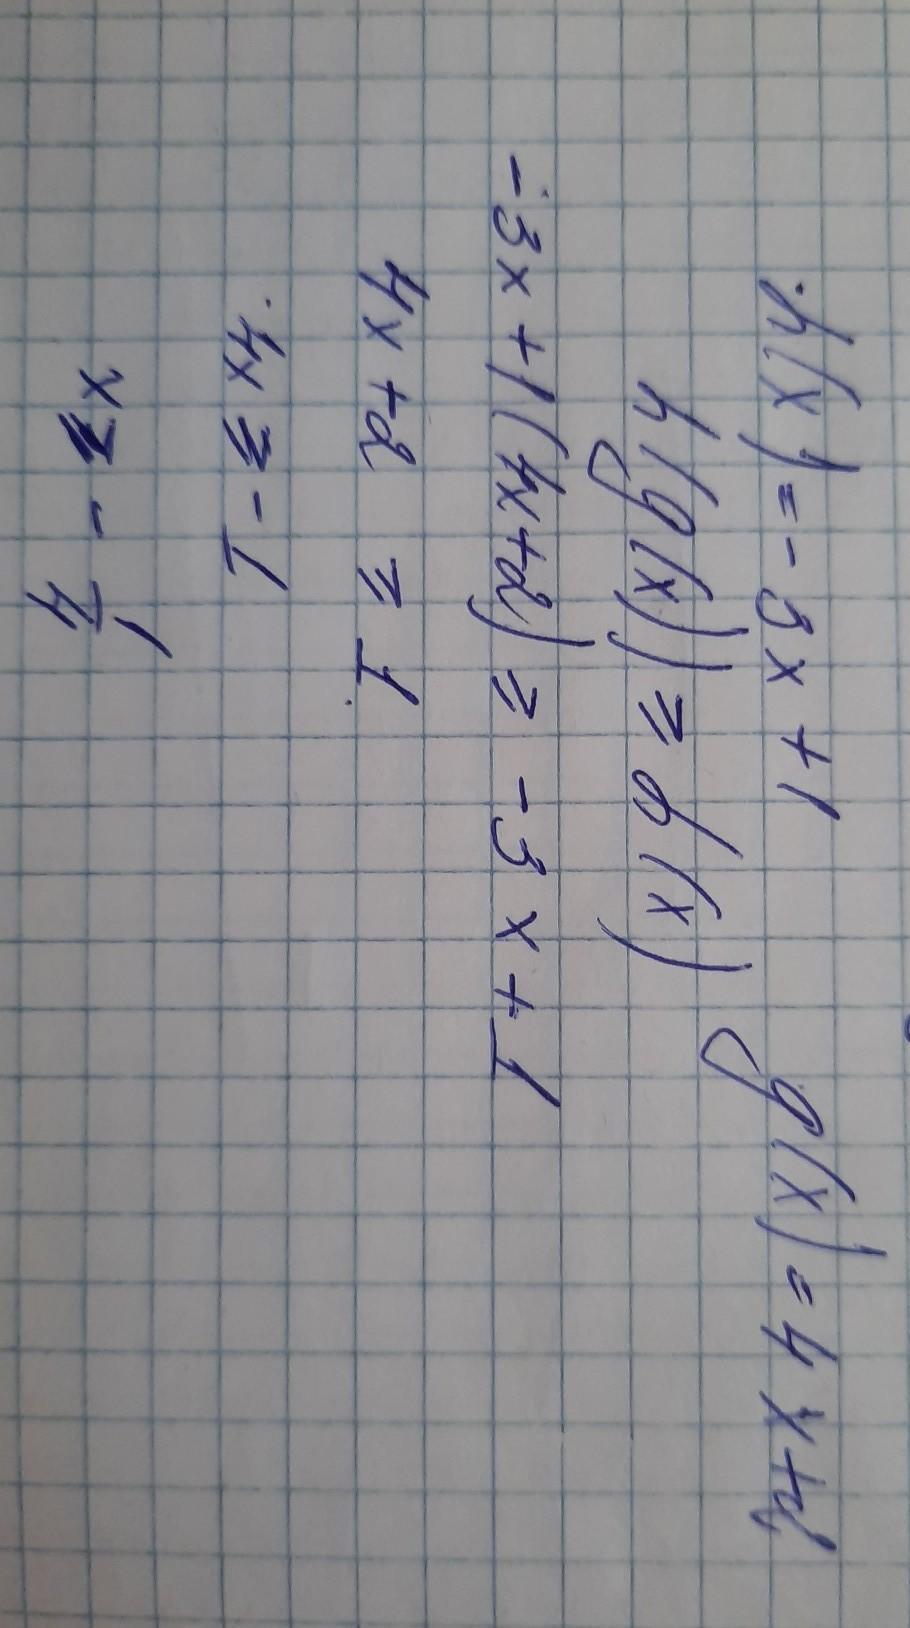 h(x) = -3x + 1 g(x) = 4x+2
h(g(x)) ≥ h(x)
-3x+1(4x+2) ≥ -3x+1
4x+2 ≥ 1
4x ≥ -1
x ≥ - 1/4